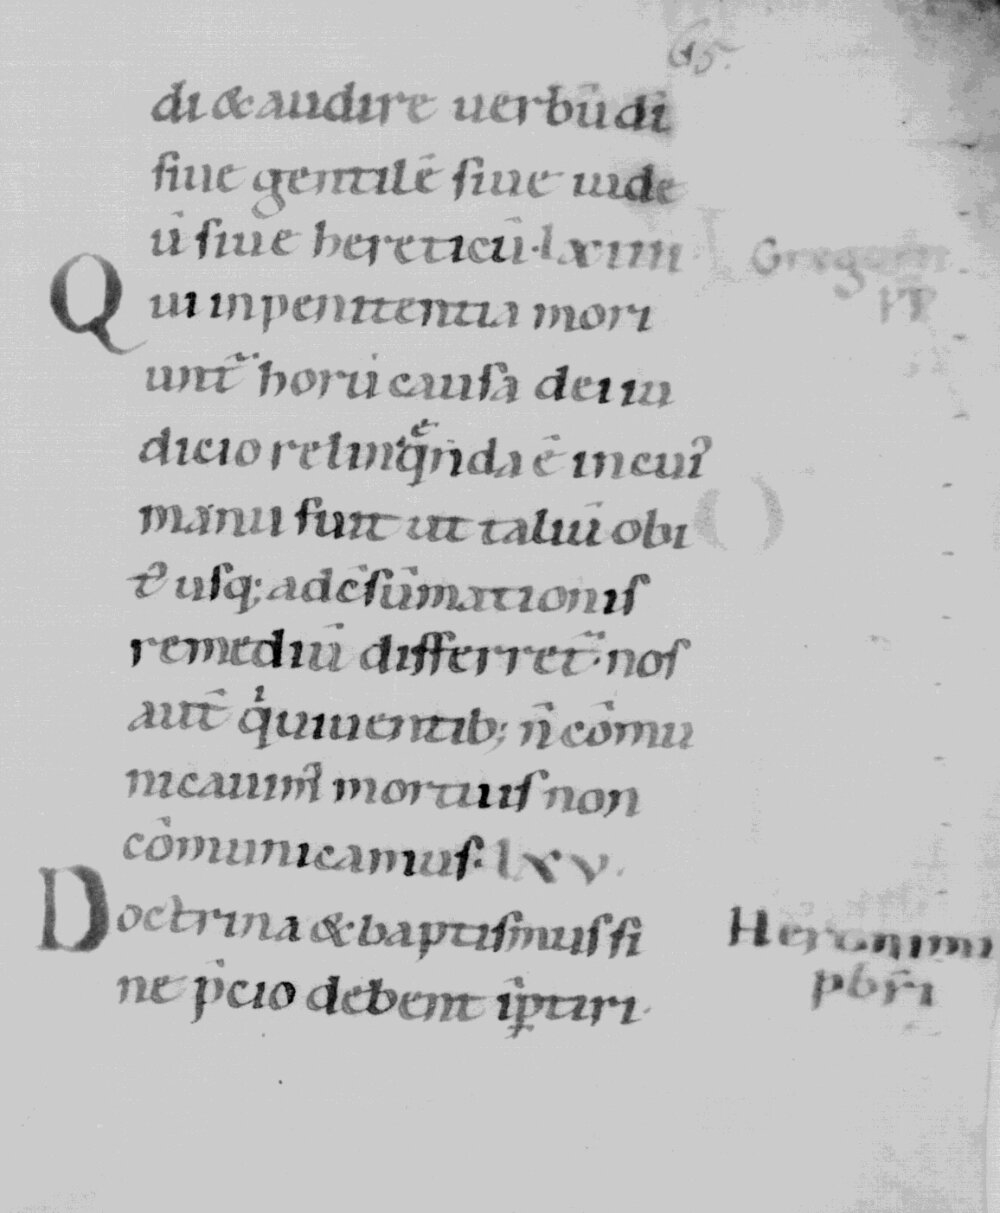 65.
di & audire uerbū di
siue gentilē siue iude
ū siue hereticū · lxiiii
Gregorii
PP
Qui in penitentia mori
unt̄ horū causa dei iu
dicio relinq̄nda ē in cui᾿
manu sunt ut taliū obi
t᾿ usq; ad c̄sūmationis
remediū differret̄ · nos
aut̄ qͥ uiuentib; n̄ cōmu
nicauim᾿ mortuis non
cōmunicamus: lxv.
Doctrina & baptismus si
Heronimi
ne p̄cio debent īptiri.
pbr̄i